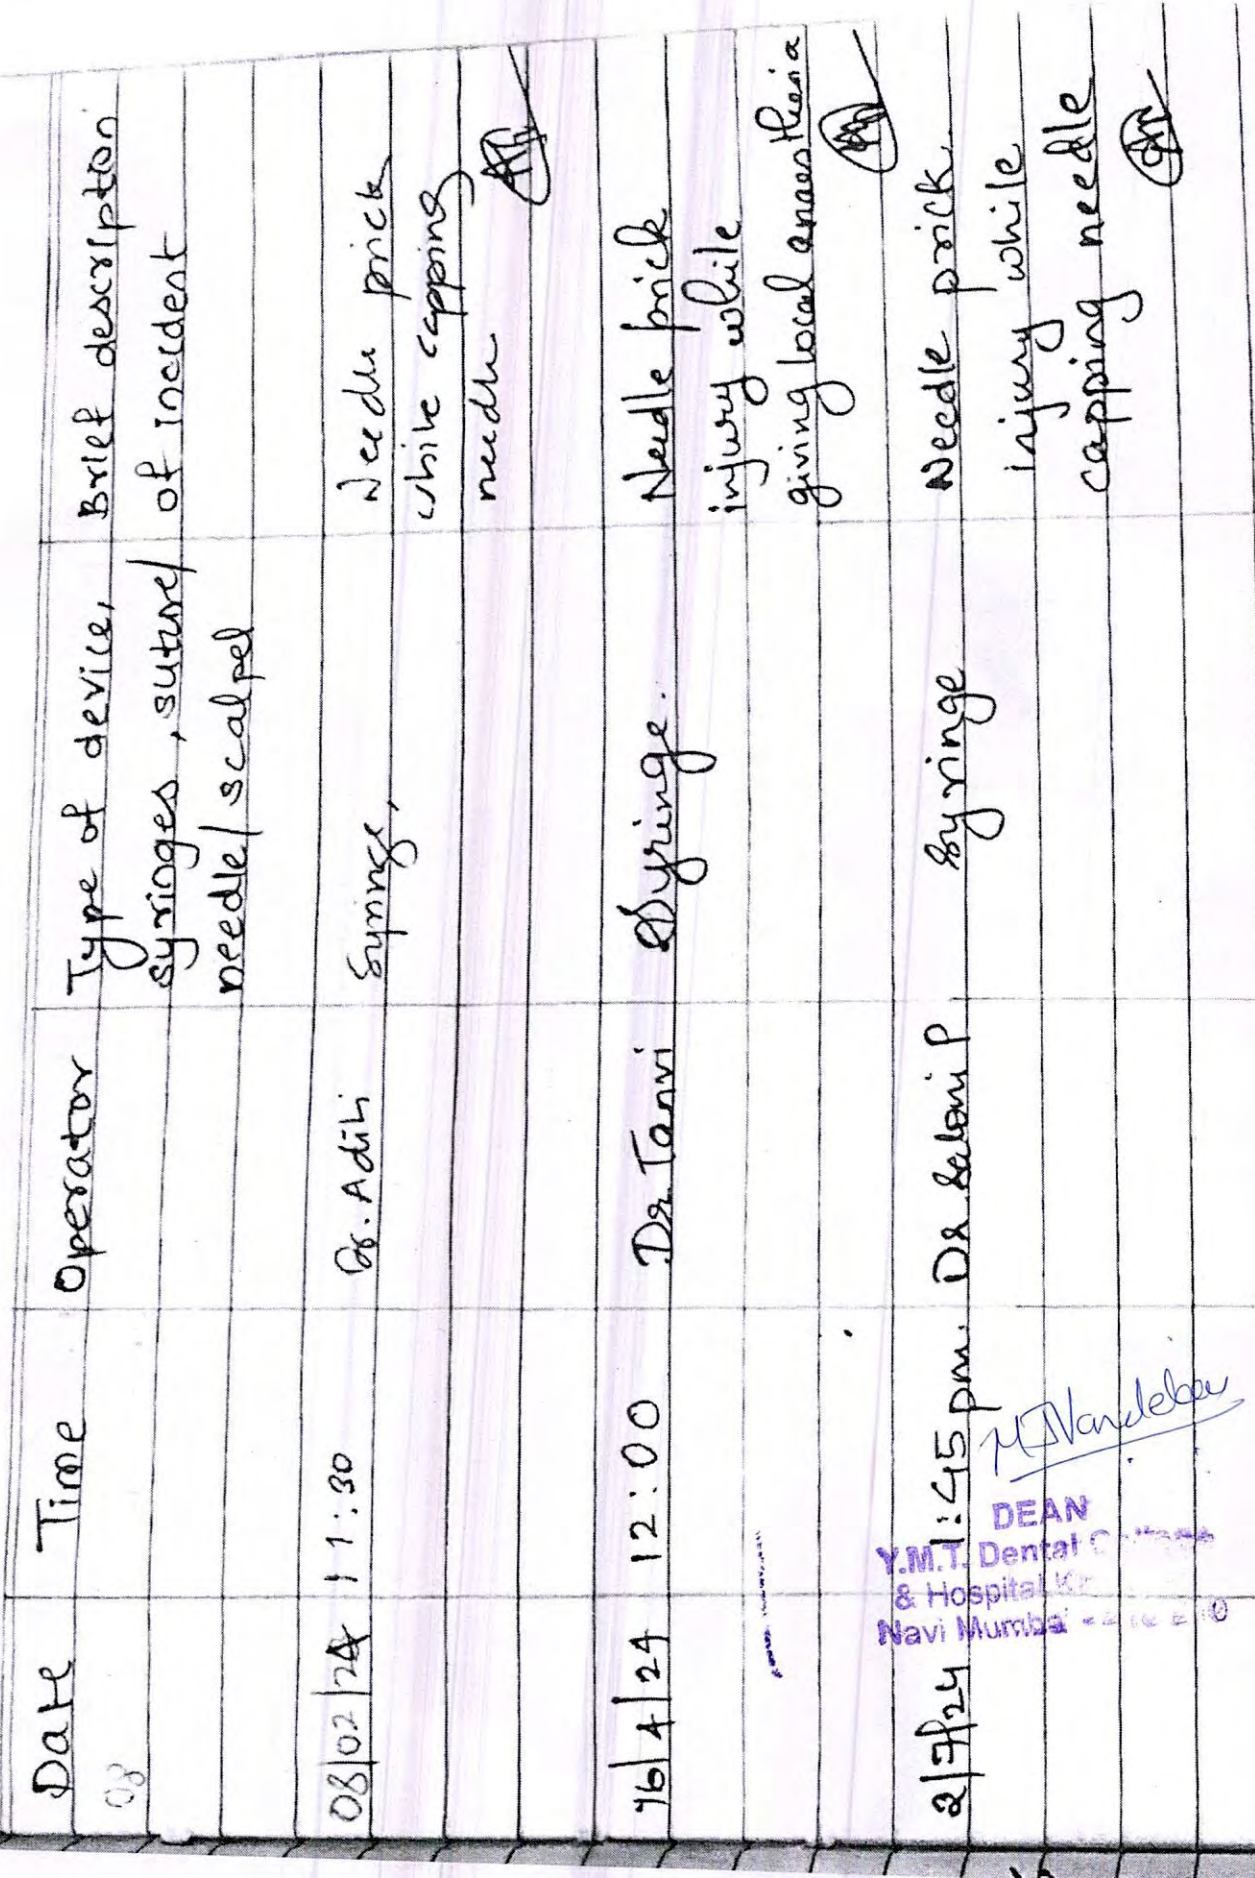 Date Time Operator Type of device, Brief descripton
08 syringes, suture/ of incident
needle/scalpel
08/02/24 11:30 Dr. Aditi Syringe, Needle prick
while capping
needle
16/4/24 12:00 Dr. Tanvi Syringe. Needle prick
injury while
giving local anaesthesia
2/7/24 1:45 pm. Dr. Saloni P Syringe Needle prick
injury while
capping needle
DEAN
Y.M.T. Dental
& Hospital
Navi Mumbai